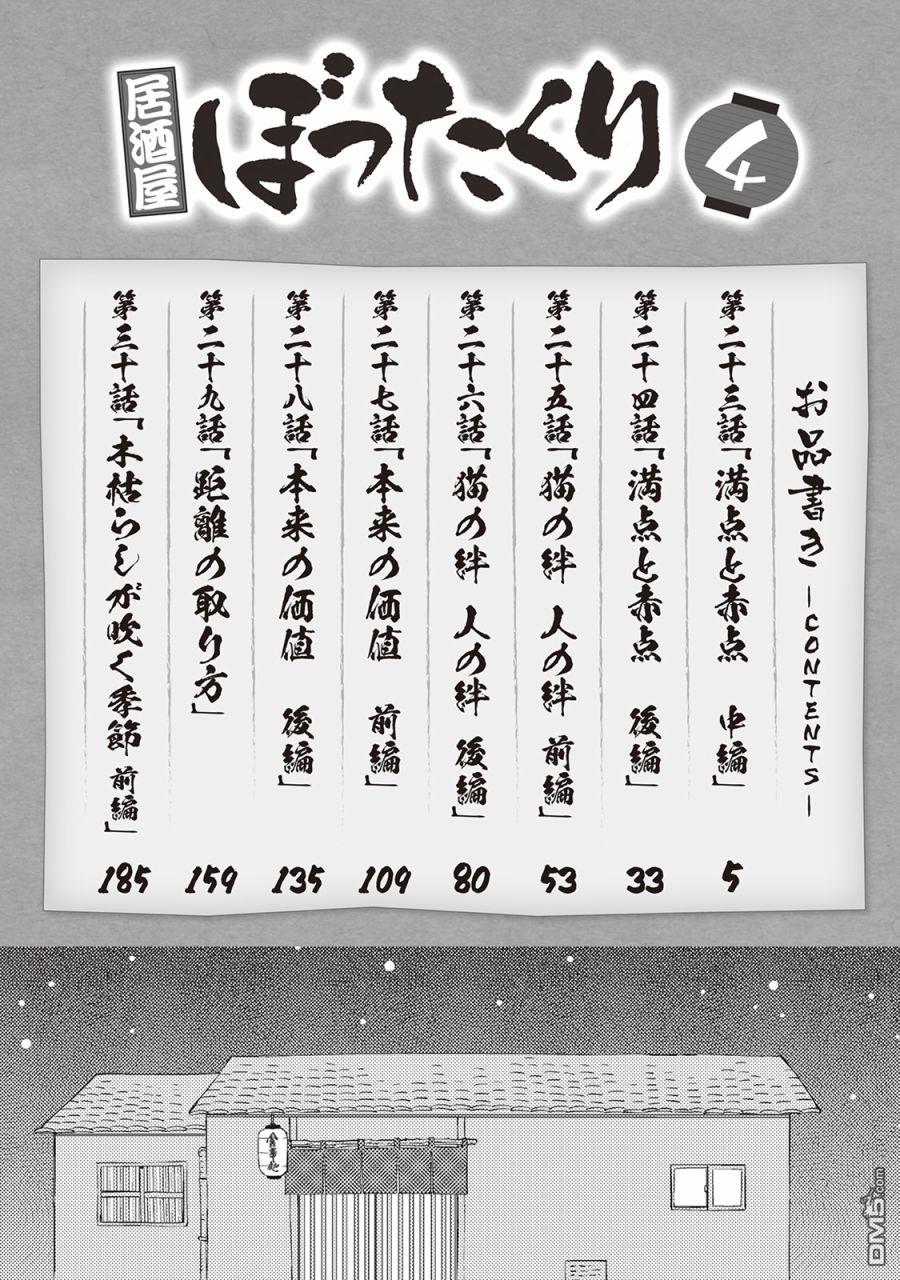 居酒屋
ぼったくり
4
お品書き ーCONTENTSー
第二十三話「満点と赤点 中編」
5
第二十四話「満点と赤点 後編」
33
第二十五話「猫の絆 人の絆 前編」
53
第二十六話「猫の絆 人の絆 後編」
80
第二十七話「本来の価値 前編」
109
第二十八話「本来の価値 後編」
135
第二十九話「距離の取り方」
159
第三十話「木枯らしが吹く季節 前編」
185
食事処
DM5.com